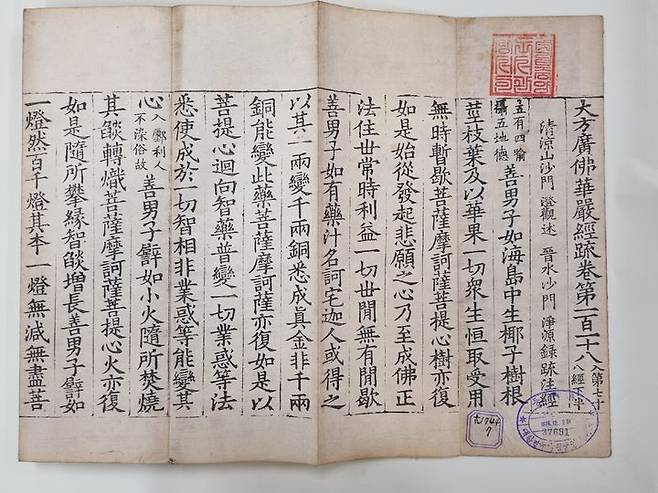 大方廣佛華嚴經疏卷第一百二十八
入第七十
八經下半
清涼山沙門 澄觀述 晉水沙門 淨源錄疏注經
五有四喻
攝五地德
善男子如海島中生椰子樹根
莖枝葉及以華果一切衆生恒取受用
無時暫歇菩薩摩訶薩菩提心樹亦復
如是始從發起悲願之心乃至成佛正
法住世常時利益一切世間無有間歇
善男子如有藥汁名訶宅迦人或得之
以其一兩變千兩銅悉成眞金非千兩
銅能變此藥菩薩摩訶薩亦復如是以
菩提心迴向智藥普變一切業惑等法
悉使成於一切智相非業惑等能變其
心
入鄽利人
不染俗故
善男子譬如小火隨所焚燒
其燄轉熾菩薩摩訶薩菩提心火亦復
如是隨所攀緣智燄增長善男子譬如
一燈然百千燈其本一燈無減無盡菩
37691